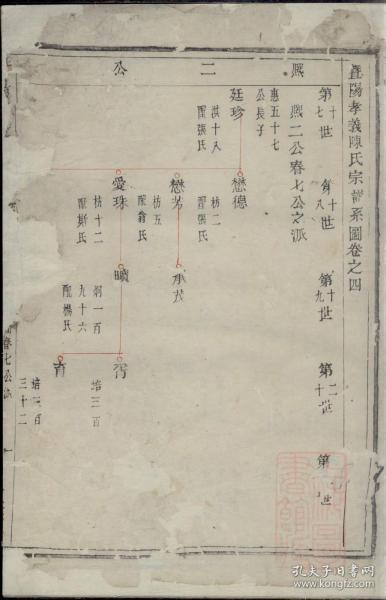 暨陽孝義陳氏宗譜系圖卷之四
熙二公
第十七世
第十八世
第十九世
第二十世
第
世
熙二公春七公之派
惠五十七
公長子
廷珍
洪十八
配張氏
懋德
枋二
配張氏
懋芳
枋五
配翁氏
承茂
愛珠
枋十二
配斯氏
曠
炯一百
九十六
配楊氏
胥
培三百
育
培三百
三十二
春七公派
孔夫子旧书网
www.kongfz.com